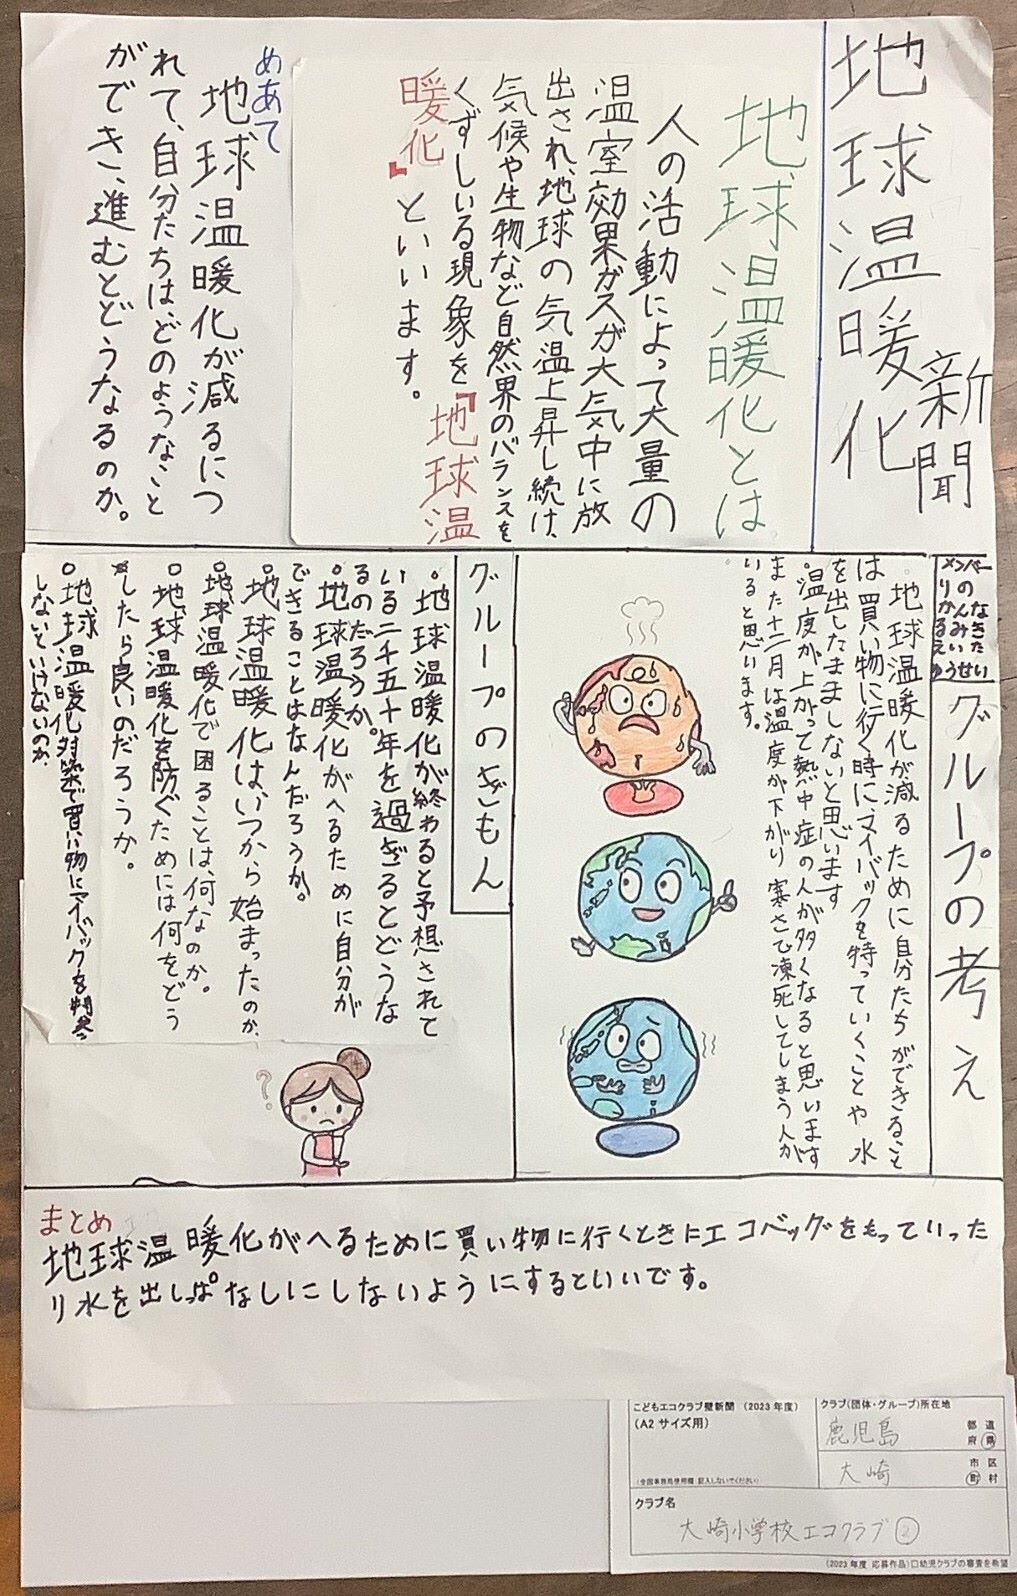 地球温暖化
新聞
地球温暖化とは
人の活動によって大量の
温室効果ガスが大気中に放
出され、地球の気温上昇し続け、
気候や生物など自然界のバランスを
くずしいる現象を『地球温
暖化』といいます。
めあて
地球温暖化が減るにつ
れて、自分たちは、どのようなこと
ができ、進むとどうなるのか。
メンバー
グループの考え
地球温暖化が減るために自分たちができること
は買い物に行く時にマイバックを持っていくことや水
を出したまましないと思います
温度が上がって熱中症の人が多くなると思います
また十二月は温度が下がり寒さで凍死してしまう人が
いると思います。
グループのぎもん
・地球温暖化が終わると予想されて
いる二千五十年を過ぎるとどうな
るのだろうか。
○地球温暖化がへるために自分が
できることはなんだろうか。
○地球温暖化は、いつから始まったのか。
○地球温暖化で困ることは、何なのか。
○地球温暖化を防ぐためには何をどう
したら良いのだろうか。
○地球温暖化対策で買い物にマイバックを持参
しないといけないのか。
?
まとめ
地球温暖化がへるために買い物に行くときにエコバッグをもっていった
り水を出しっぱなしにしないようにするといいです。
こどもエコクラブ壁新聞 (2023年度)
(A2サイズ用)
(全国事務局使用欄:記入しないでください)
クラブ(団体・グループ)所在地
鹿児島 都道府県
大崎 市区町村
クラブ名
大崎小学校エコクラブ②
(2023年度 応募作品)□幼児クラブの審査を希望